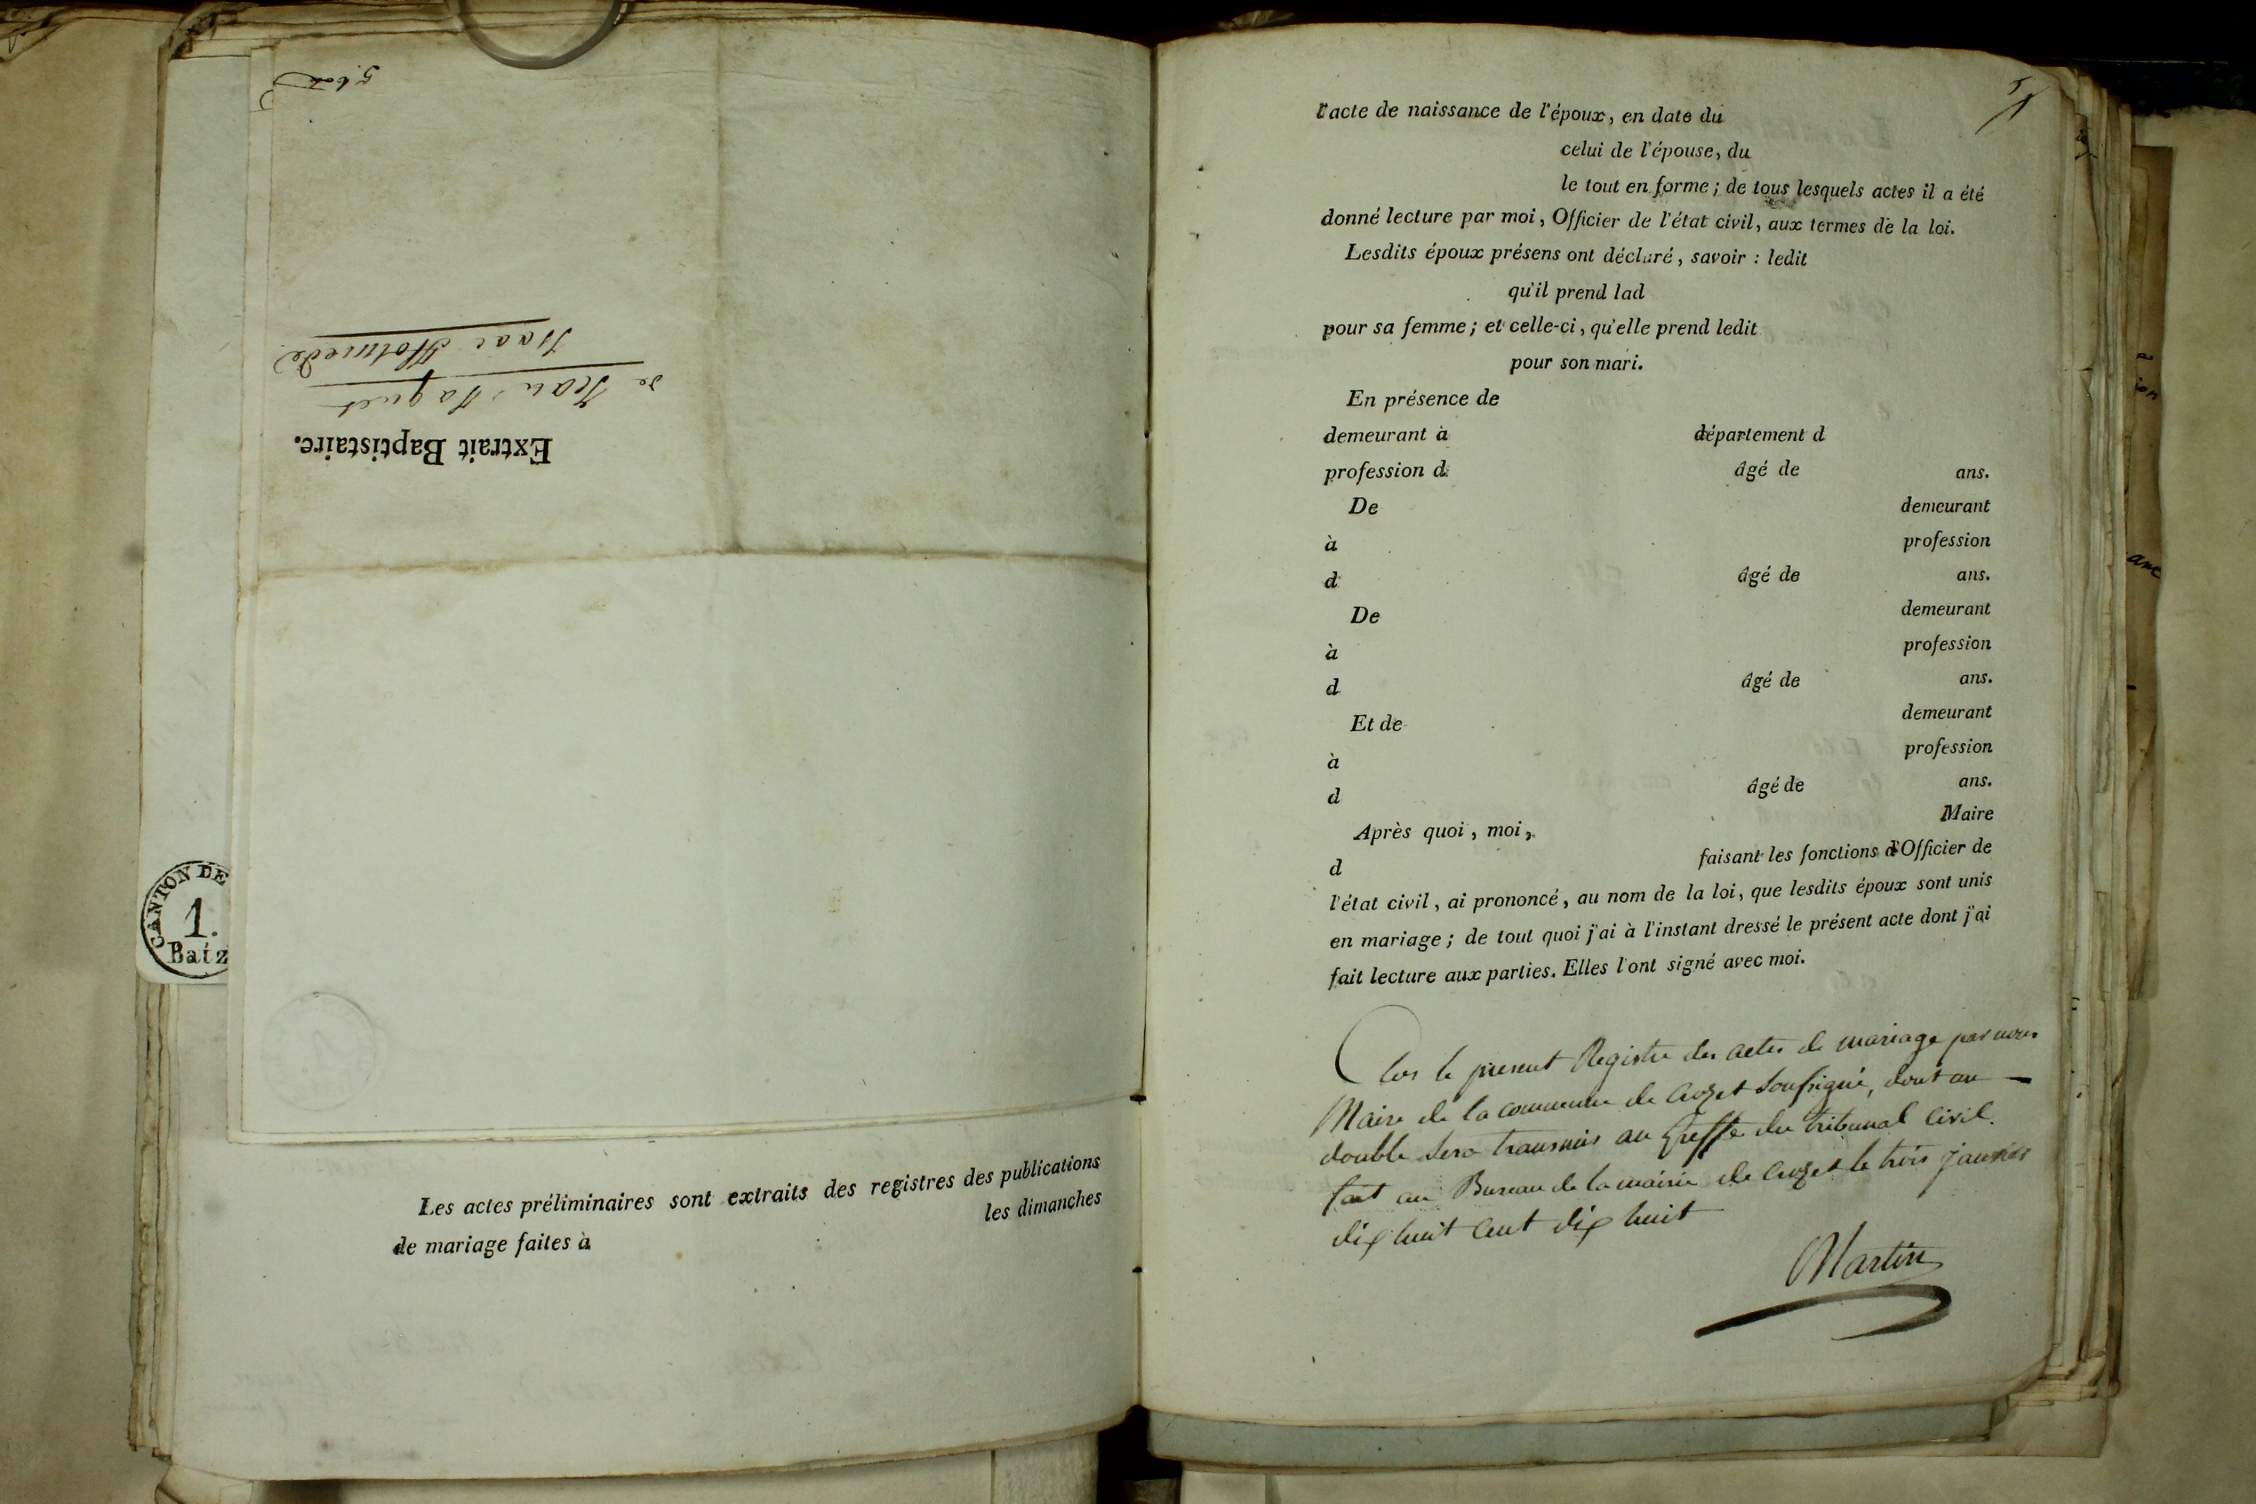 Extrait Baptistaire.
de Jean Jaques
Isaac
CANTON DE
1.
Batz
Les actes préliminaires sont extraits des registres des publications
de mariage faites à les dimanches
l'acte de naissance de l'époux, en date du
celui de l'épouse, du
le tout en forme ; de tous lesquels actes il a été
donné lecture par moi, Officier de l'état civil, aux termes de la loi.
Lesdits époux présens ont déclaré, savoir : ledit
qu'il prend lad
pour sa femme ; et celle-ci, qu'elle prend ledit
pour son mari.
En présence de
demeurant à département d
profession d âgé de ans.
De demeurant
à profession
d âgé de ans.
De demeurant
à profession
d âgé de ans.
Et de demeurant
à profession
d âgé de ans.
Après quoi, moi, Maire
d faisant les fonctions d'Officier de
l'état civil, ai prononcé, au nom de la loi, que lesdits époux sont unis
en mariage ; de tout quoi j'ai à l'instant dressé le présent acte dont j'ai
fait lecture aux parties. Elles l'ont signé avec moi.
Clos le present Registre des actes de mariage par nous
Maire de la commune de Crozet Soussigné, dont un
double sera transmis au greffe du tribunal Civil.
fait au Bureau de la mairie de Crozet le trois janvier
dix huit cent dix huit
Martin